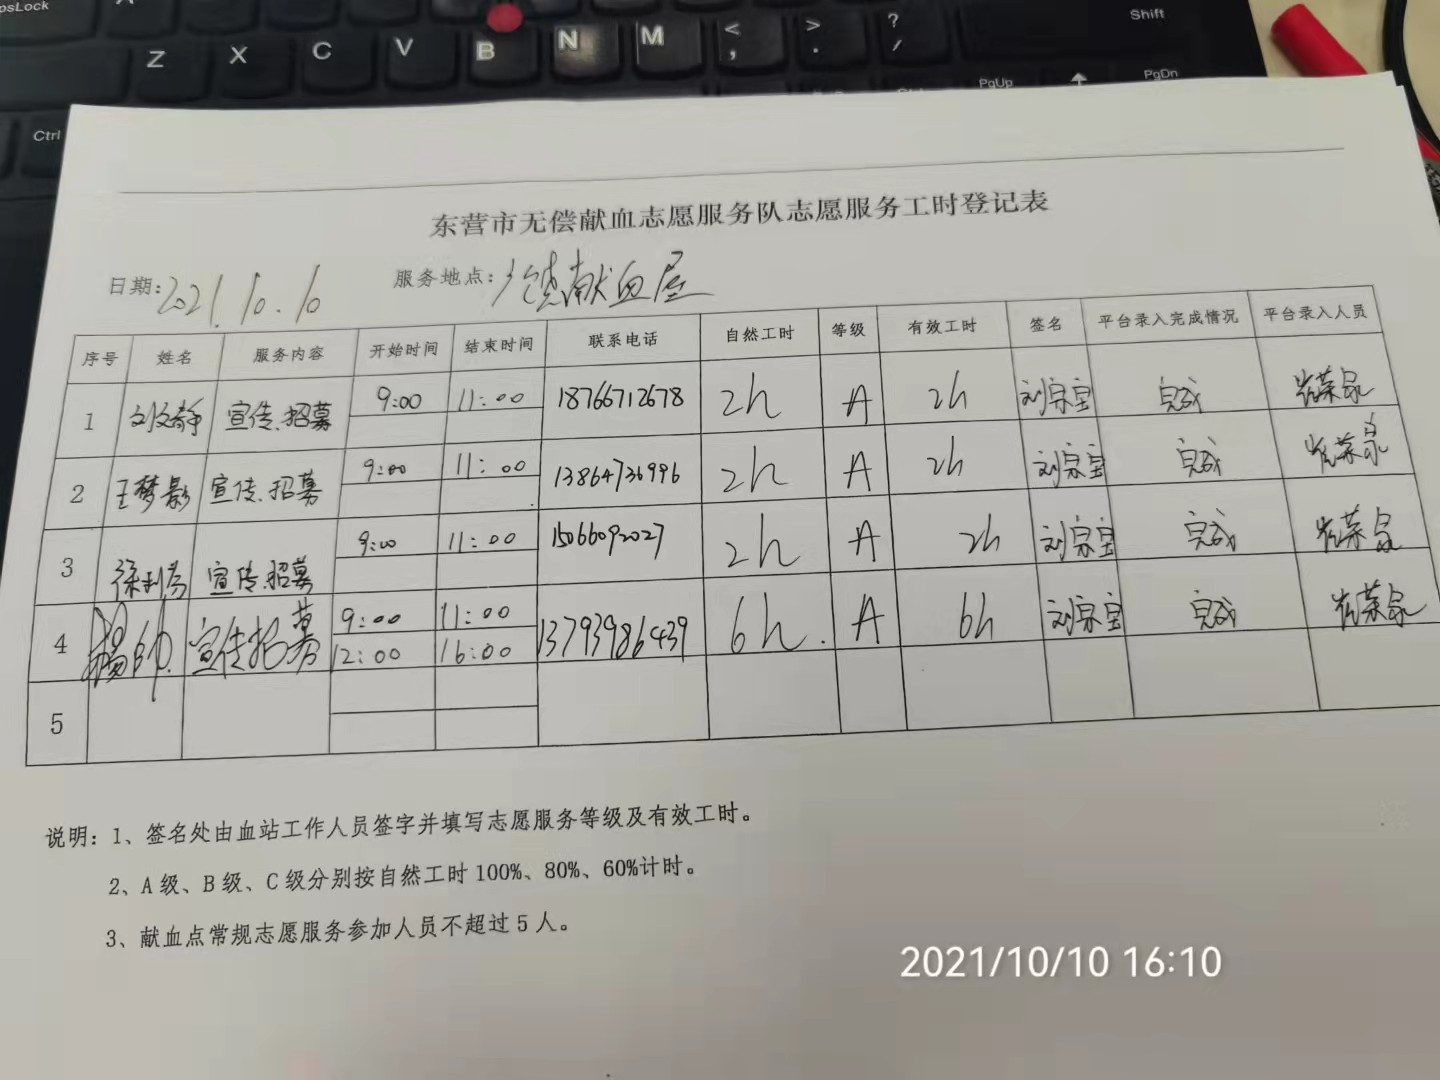 psLock
A
Shift
Z X C V B N M < , > . ? /
Ctrl
PgUp
PgDn
东营市无偿献血志愿服务队志愿服务工时登记表
日期:2021.10.10 服务地点:广饶献血屋
序号 姓名 服务内容 开始时间 结束时间 联系电话 自然工时 等级 有效工时 签名 平台录入完成情况 平台录入人员
1 刘文静 宣传、招募 9:00 11:00 18766712678 2h A 2h 刘宗宝 完成
2 王梦影 宣传、招募 9:00 11:00 13864736996 2h A 2h 刘宗宝 完成
3 徐利芬 宣传、招募 9:00 11:00 15066092027 2h A 2h 刘宗宝 完成
4 杨帅 宣传招募 9:00 11:00 13793986439 6h. A 6h 刘宗宝 完成
12:00 16:00
5
说明：1、签名处由血站工作人员签字并填写志愿服务等级及有效工时。
2、A级、B级、C级分别按自然工时100%、80%、60%计时。
3、献血点常规志愿服务参加人员不超过5人。
2021/10/10 16:10